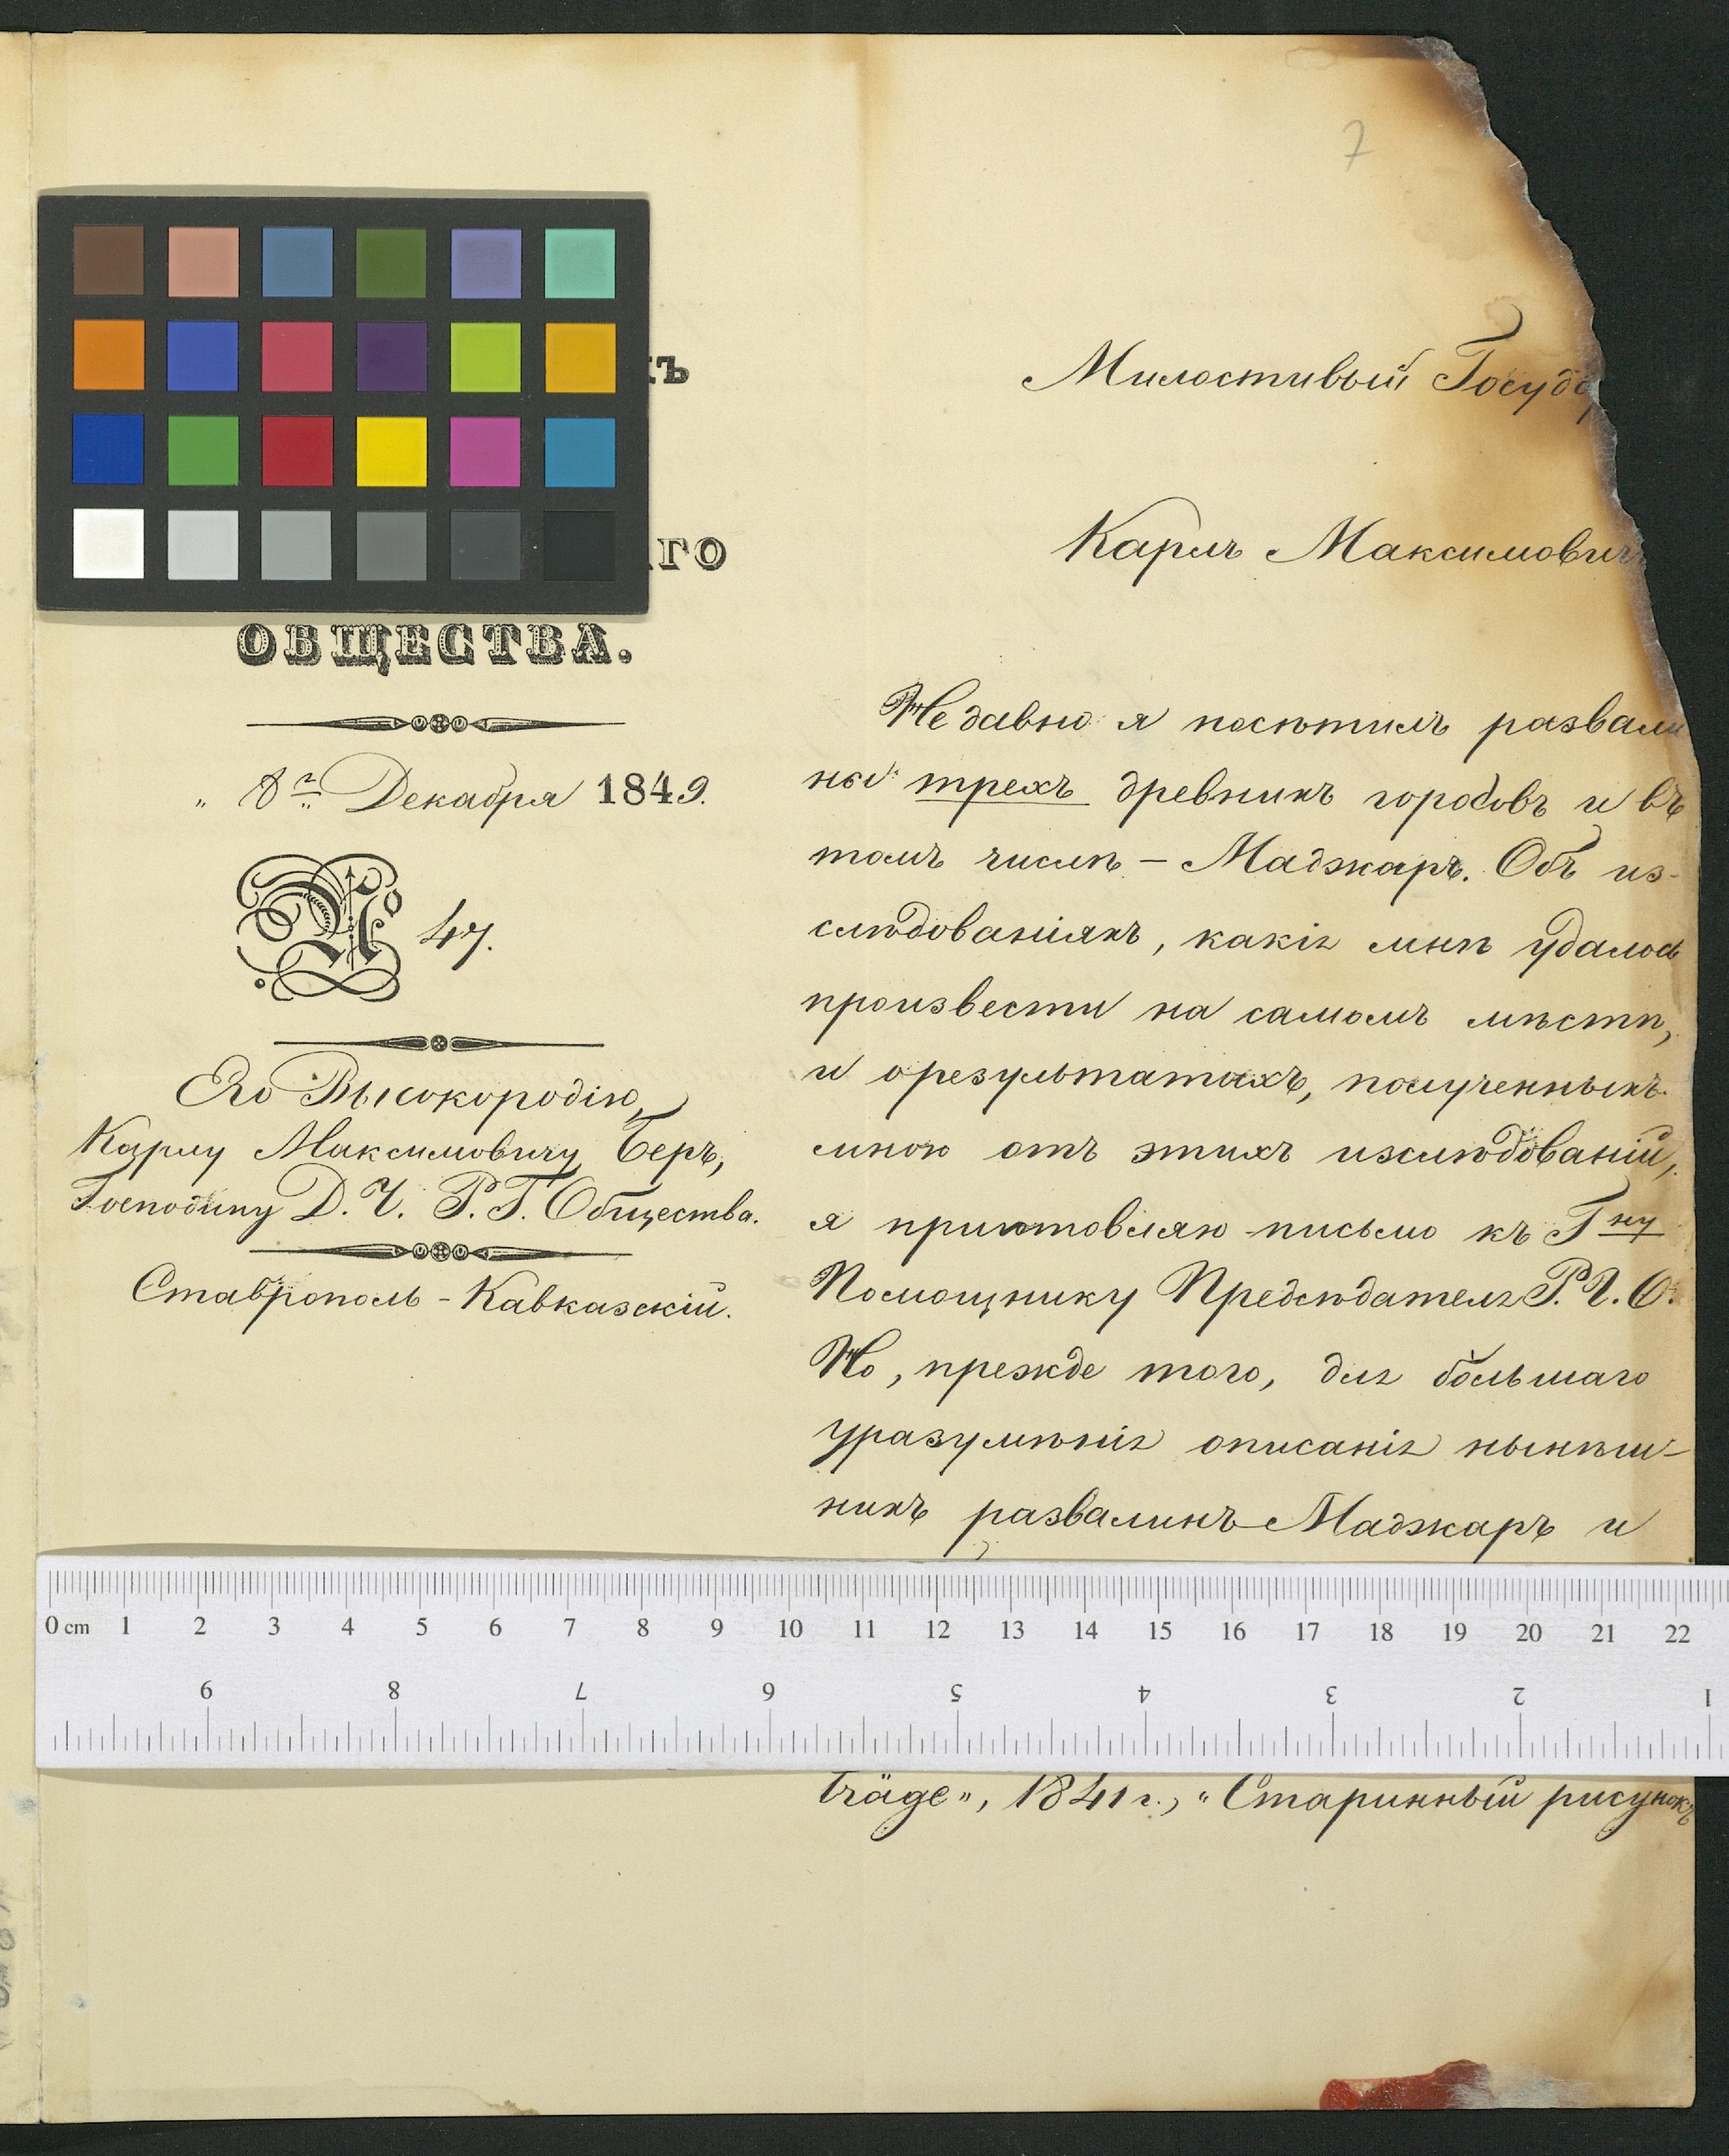 7
ОБЩЕСТВА.
„ 8го Декабря 1849.
№ 47.
Его Высокородію,
Карлу Максимовичу Беръ,
Господину Д. Ч. Р. Г. Общества.
Ставрополь-Кавказскій.
Милостивый
Карлъ
Недавно я посѣтилъ развали
ны трехъ древнихъ городовъ и въ
томъ числѣ – Маджаръ. Объ из-
слѣдованіяхъ, какія мнѣ удалось
произвести на самомъ мѣстѣ,
и о результатахъ, полученныхъ
мною отъ этихъ изслѣдованій,
я приготовляю письмо къ Гну
Помощнику Предсѣдателя Р. Г. О.
Но, прежде того, для бо́льшаго
уразумѣнія описанія нынѣш-
нихъ развалинъ Маджаръ и
träge", 1841 г., "Старинный рисунокъ
0 cm 1 2 3 4 5 6 7 8 9 10 11 12 13 14 15 16 17 18 19 20 21 22
9 8 7 6 5 4 3 2 1